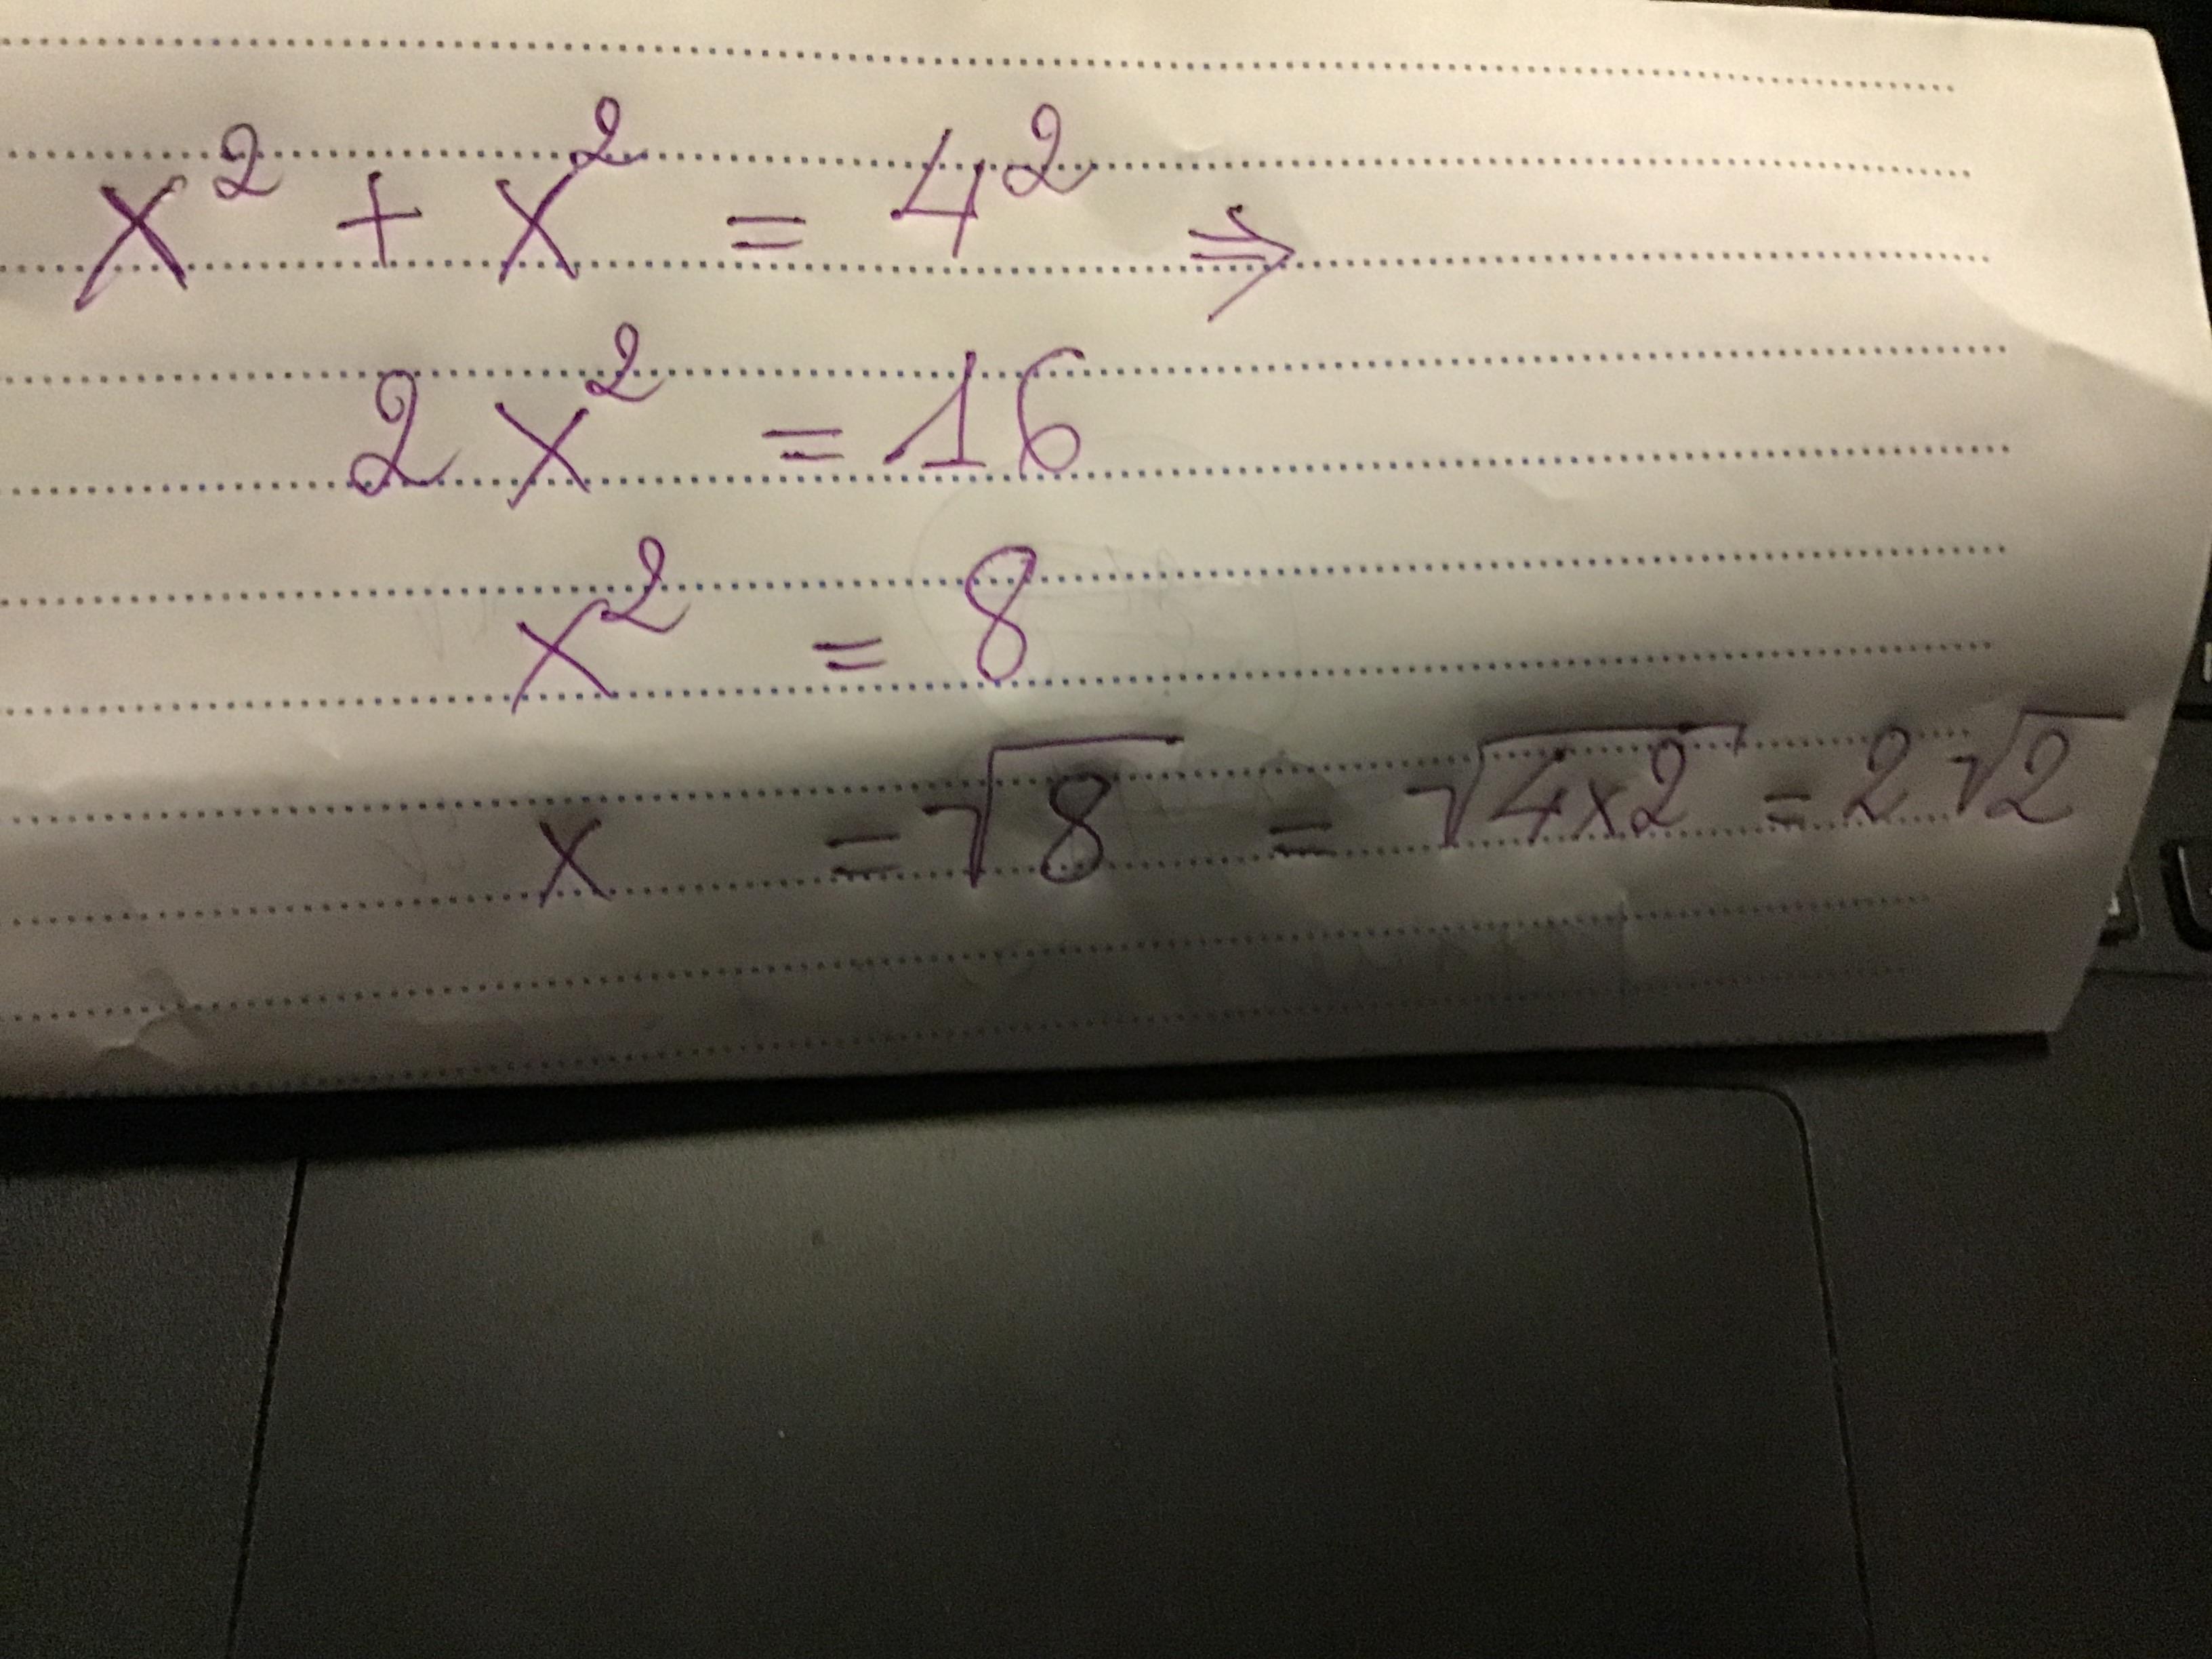 x² + x² = 4² ⇒
2x² = 16
x² = 8
x = √8 = √4x2 = 2√2